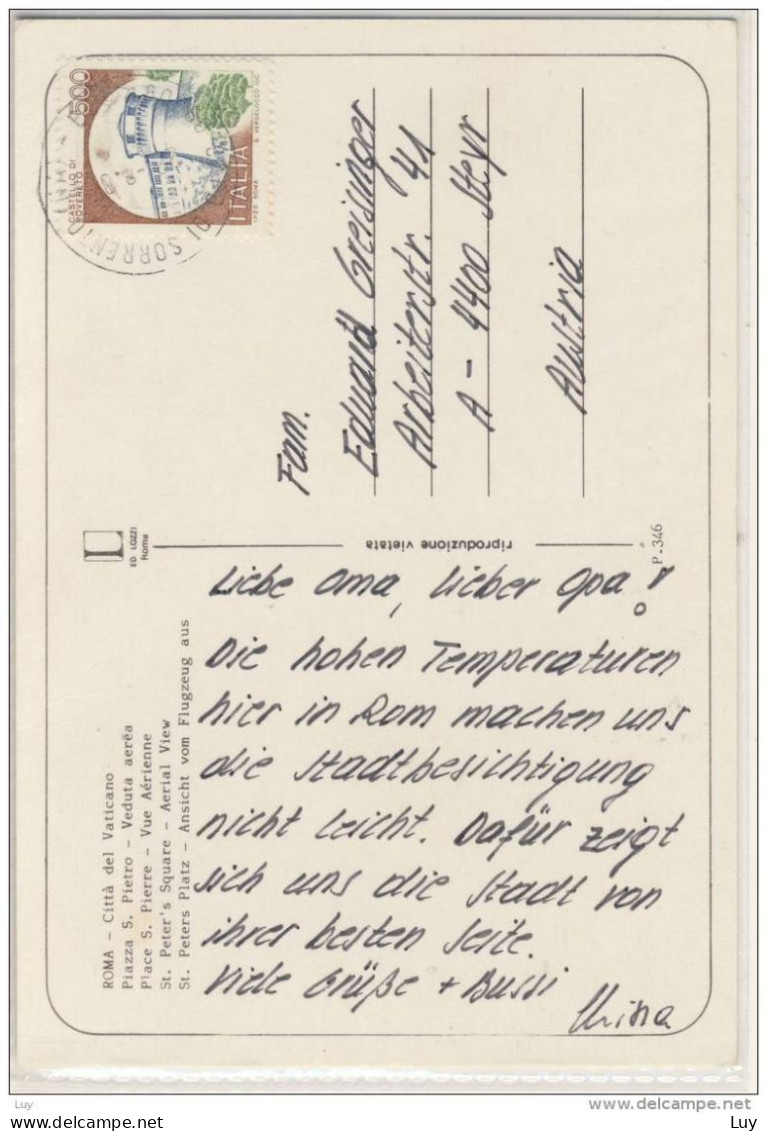 500
CASTELLO DI
ROVERETO
ITALIA
SORRENTO
Fam.
Eduard Greisinger
Arbeiterstr. 41
A - 4400 Steyr
Austria
L
ED LOZZI
Roma
riproduzione vietata
P. 346
ROMA - Città del Vaticano
Piazza S. Pietro - Veduta aerëa
Place S. Pierre - Vue Aérienne
St. Peter's Square - Aerial View
St. Peters Platz - Ansicht vom Flugzeug aus
Liebe Oma, lieber Opa!
Die hohen Temperaturen
hier in Rom machen uns
die Stadtbesichtigung
nicht leicht. Dafür zeigt
sich uns die Stadt von
ihrer besten Seite.
Viele Grüße + Bussi
Luy
delcampe.net
Luy
Luy